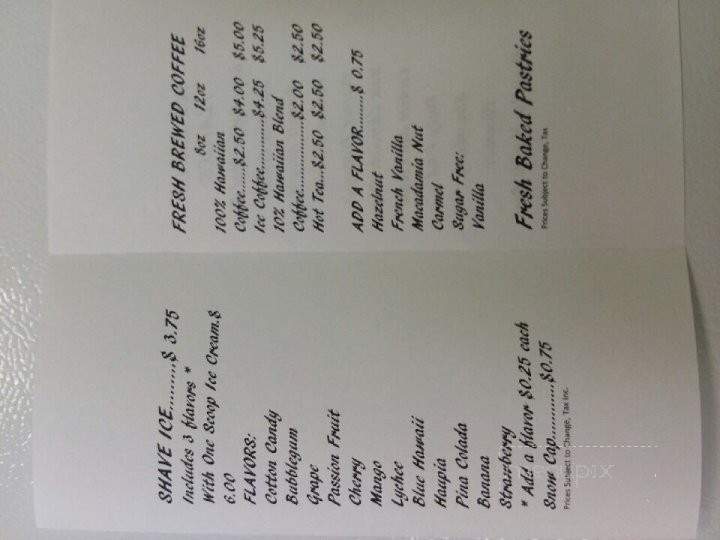 SHAVE ICE.........$ 3.75
Includes 3 flavors *
With One Scoop Ice Cream.$
6.00
FLAVORS:
Cotton Candy
Bubblegum
Grape
Passion Fruit
Cherry
Mango
Lychee
Blue Hawaii
Haupia
Pina Colada
Banana
Strawberry
* Add a flavor $0.25 each
Snow Cap............$0.75
Prices Subject to Change, Tax Inc.
FRESH BREWED COFFEE
8oz 12oz 16oz
100% Hawaiian
Coffee......$2.50 $4.00 $5.00
Ice Coffee............$4.25 $5.25
10% Hawaiian Blend
Coffee................$2.00 $2.50
Hot Tea...$2.50 $2.50 $2.50
ADD A FLAVOR........$ 0.75
Hazelnut
French Vanilla
Macadamia Nut
Carmel
Sugar Free:
Vanilla
Fresh Baked Pastries
Prices Subject to Change, Tax